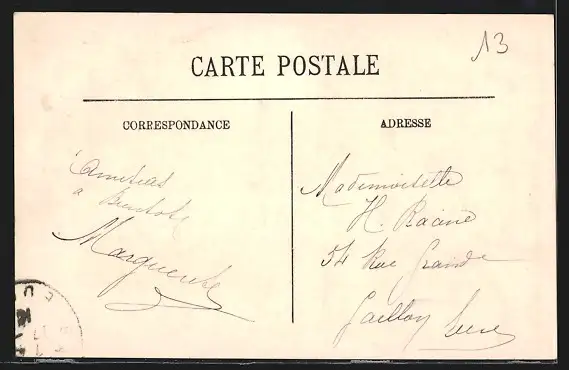 13
CARTE POSTALE
CORRESPONDANCE
ADRESSE
Amitiés
à Bientôt
Marguerite
Mademoiselle
H. Racine
54 Rue Grande
Gaillon Eure